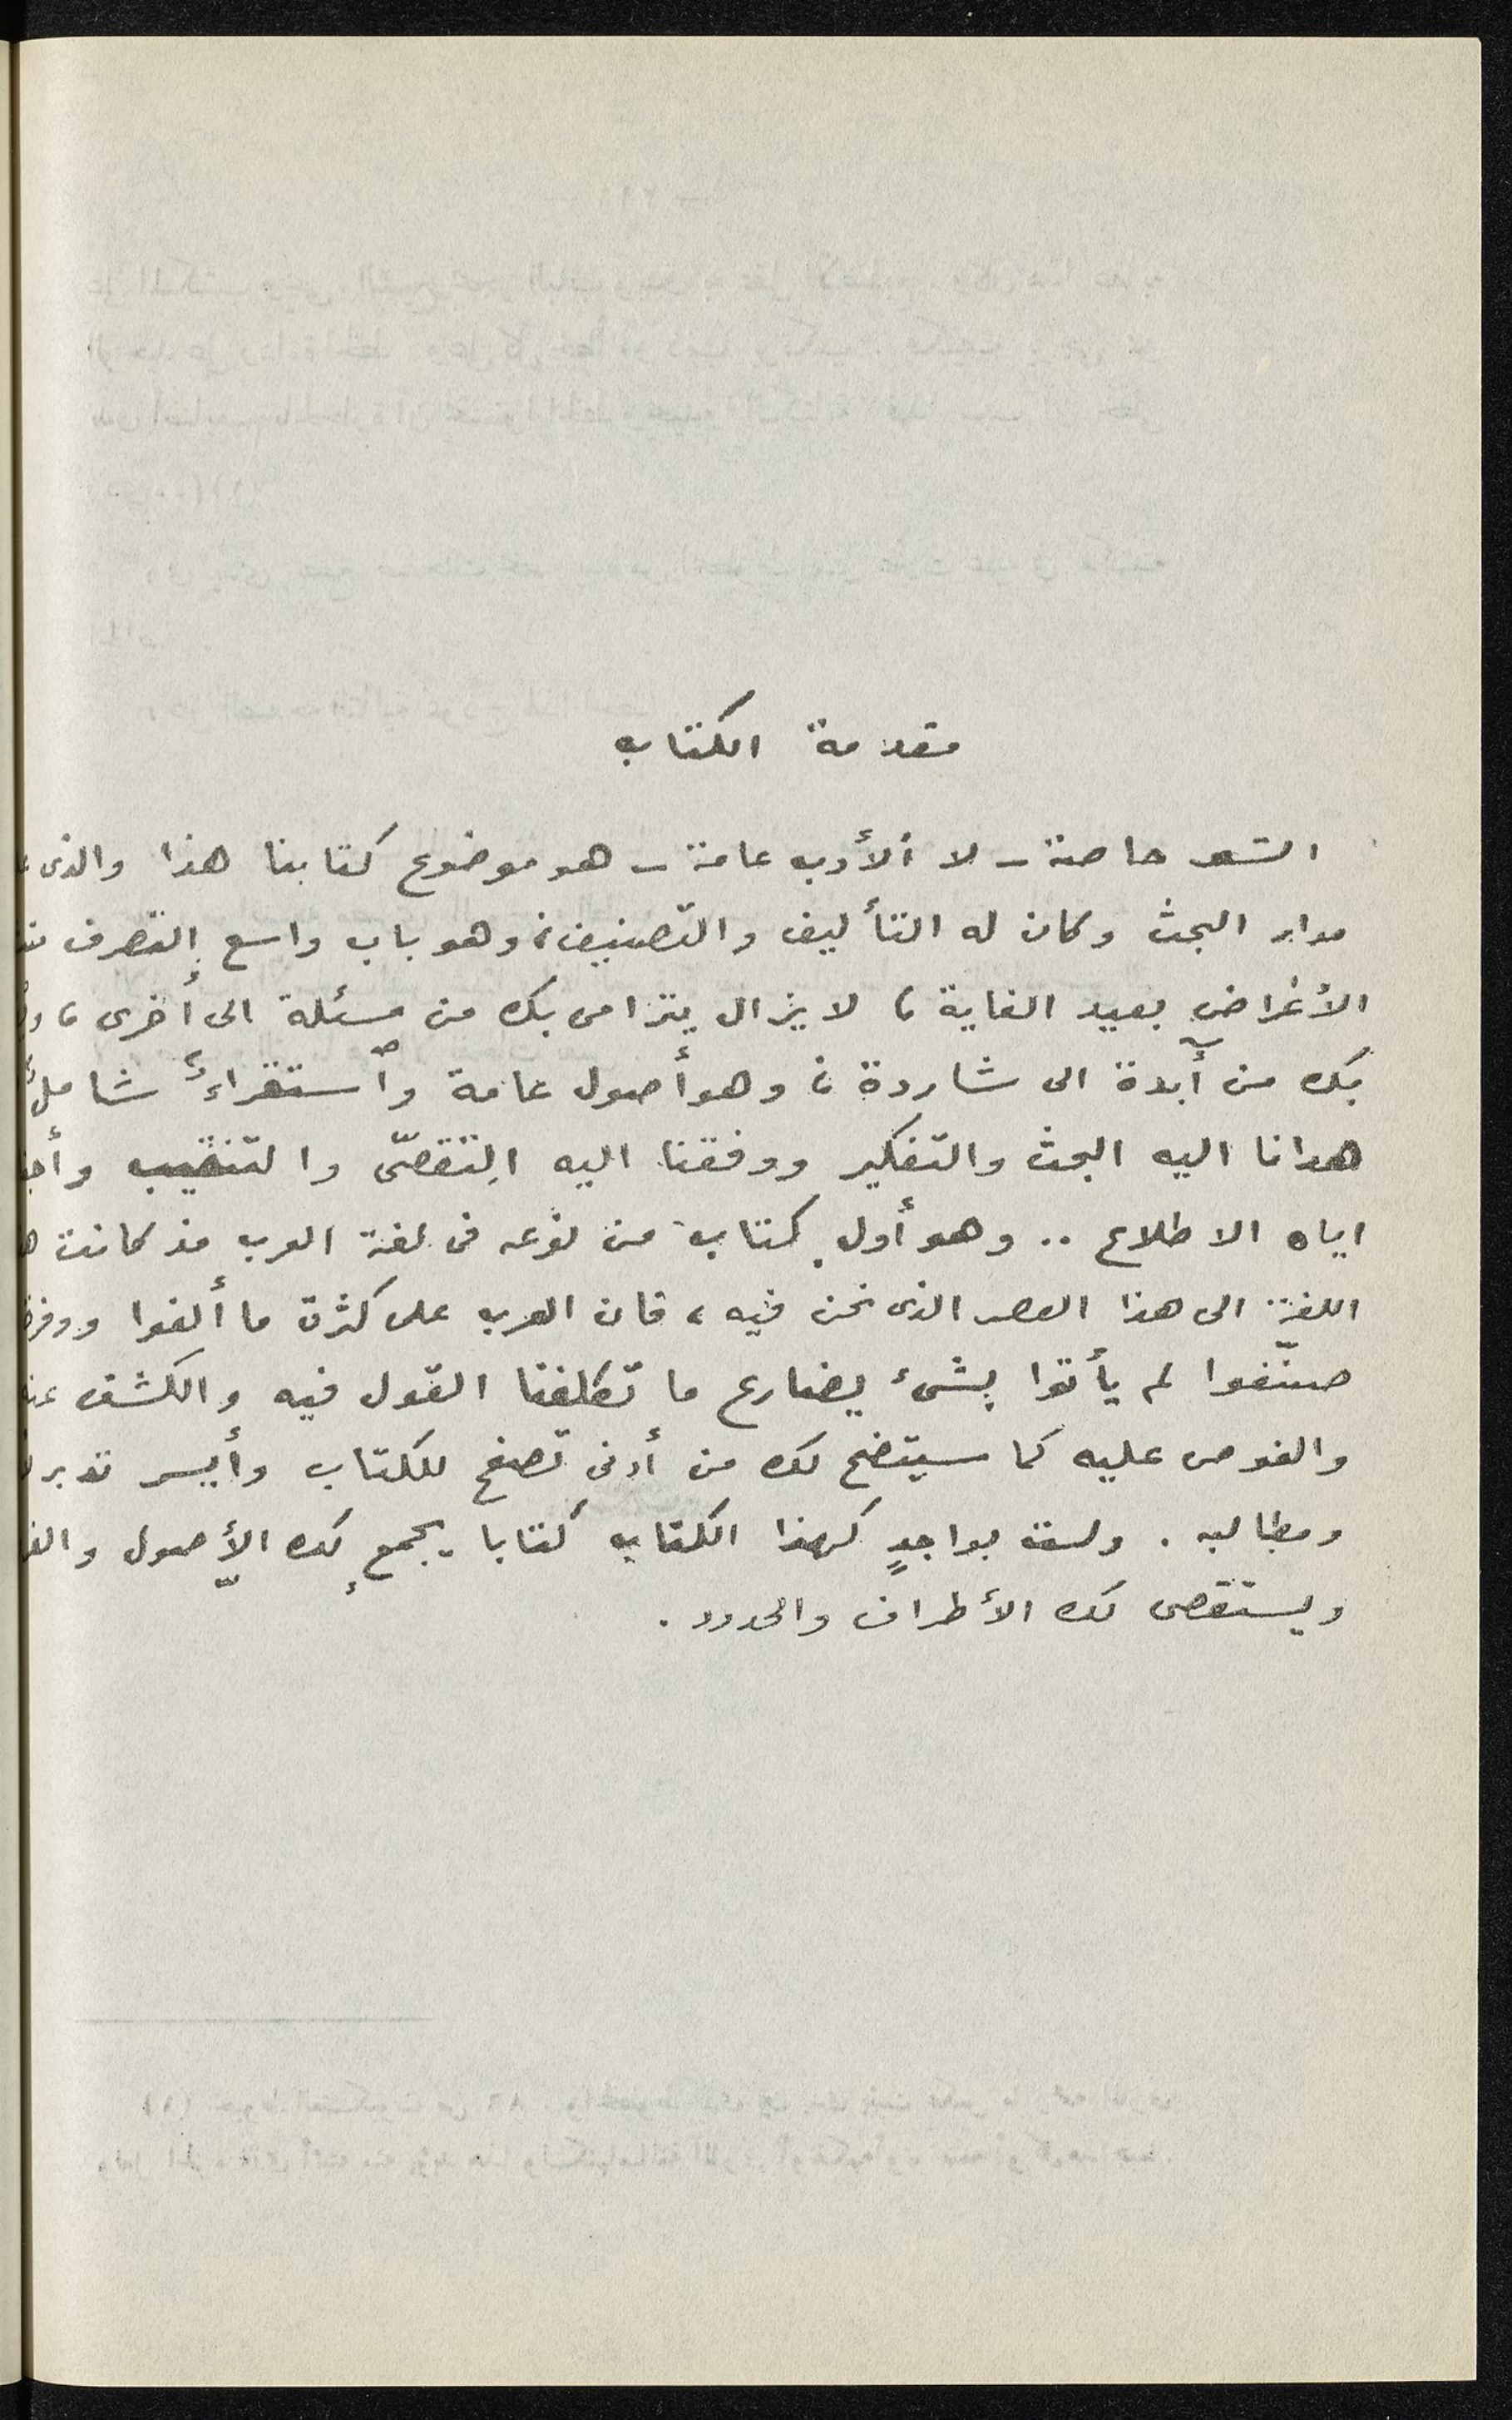 مقدمة الكتاب
الشعر خاصة - لا الأدب عامة - هو موضوع كتابنا هذا والذى
مدار البحث وكان له التأليف والتصنيف، وهو باب واسع التصرف
الأغراض بعيد الغاية، لا يزال يترامى بك من مسئلة الى أخرى،
بك من آبدة الى شاردة، وهو أصول عامة واستقراء شامل
هدانا اليه البحث والتفكير ووفقنا اليه التقصّى والتنقيب
اياه الاطلاع .. وهو أول كتاب من نوعه فى لغة العرب مذ كانت
اللغة الى هذا العصر الذى نحن فيه، فان العرب على كثرة ما ألفوا
صنّفوا لم يأتوا بشىء يضارع ما تكلفنا القول فيه والكشف
والغوص عليه كما سيتضح لك من أدنى تصفح للكتاب وأيسر تدبر
ومطالبه . ولست بواجدٍ كهذا الكتاب كتابا يجمع لك الأصول
ويستقصى لك الأطراف والحدود .